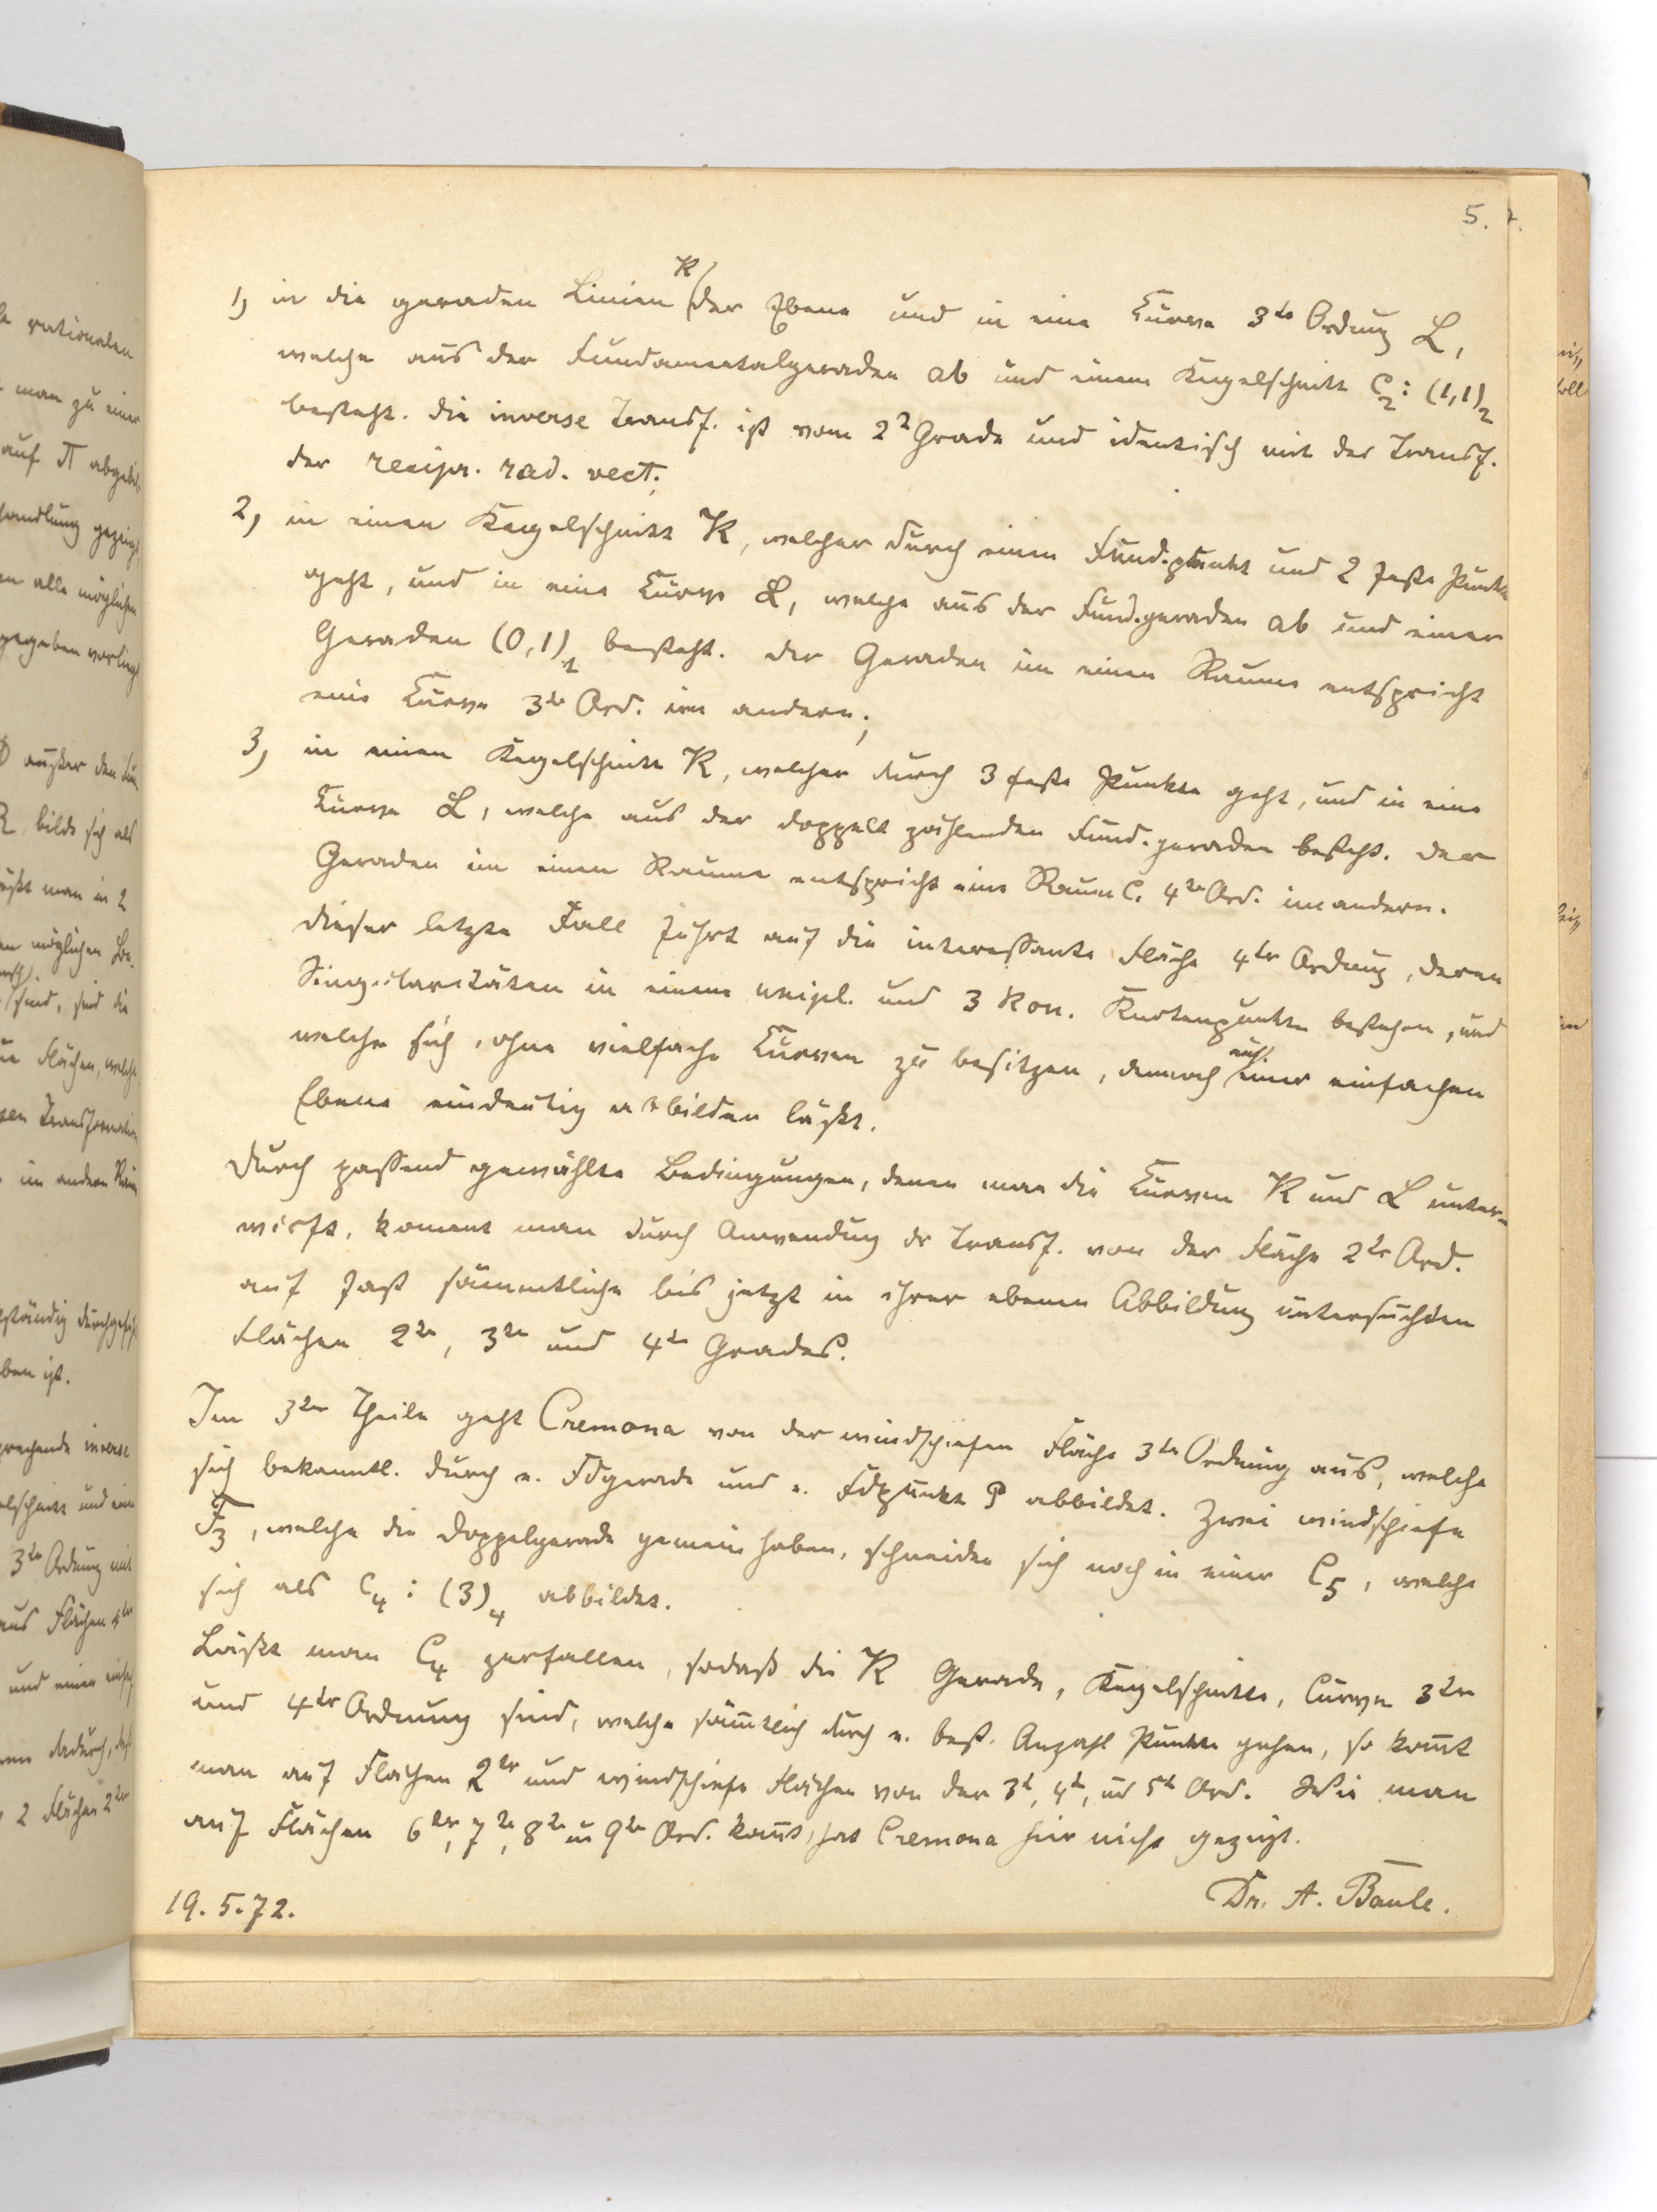 5.
1, in die geraden Linien K der Ebene und in eine Curve 3ter Ordnung L,
welche aus der Fundamentalgeraden ab und einem Kegelschnitt C2: (1,1)2
besteht. Die inverse Transf. ist vom 2ten Grade und identisch mit der Transf.
der recipr. rad. vect.;
2, in einen Kegelschnitt K, welcher durch einen Fund.punkt und 2 feste Punkte
geht, und in eine Curve L, welche aus der Fund.geraden ab und einer
Geraden (0,1)1 besteht. Der Geraden im einen Raume entspricht
eine Curve 3ter Ord. im andern;
3, in einen Kegelschnitt K, welcher durch 3 feste Punkte geht, und in eine
Curve L, welche aus der doppelt zählenden Fund.geraden besteht. Der
Geraden im einen Raume entspricht eine Raum C. 4ter Ord. im andern.
Dieser letzte Fall führt auf die interessante Fläche 4ter Ordnung, deren
Singularitäten in einem unipl. und 3 kon. Knotenpunkten bestehen, und
welche sich, ohne vielfache Curven zu besitzen, dennoch auf einer einfachen
Ebene eindeutig abbilden läßt.
Durch passend gewählte Bedingungen, denen man die Curven K und L unter-
wirft, kommt man durch Anwendung dr Transf. von der Fläche 2ter Ord.
auf fast sämmtliche bis jetzt in ihrer ebenen Abbildung untersuchten
Flächen 2ten, 3ten und 4ten Grades.
Im 3ten Theile geht Cremona von der windschiefen Fläche 3ter Ordnung aus, welche
sich bekanntl. durch e. Fdgerade und e. Fdpunkt P abbildet. Zwei windschiefe
F3, welche die Doppelgerade gemein haben, schneiden sich noch in einer C5, welche
sich als C4: (3)4 abbildet.
Läßt man C4 zerfallen, sodaß die K Gerade, Kegelschnitte, Curven 3ter
und 4ter Ordnung sind, welche sämtlich durch e. best. Anzahl Punkte gehen, so komt
man auf Flächen 2ter und windschiefe Flächen von der 3t, 4t, ud 5t Ord. Wie man
auf Flächen 6ter, 7ter, 8ter u 9ter Ord. komt, hat Cremona hier nicht gezeigt.
19.5.72.
Dr. A. Baule.